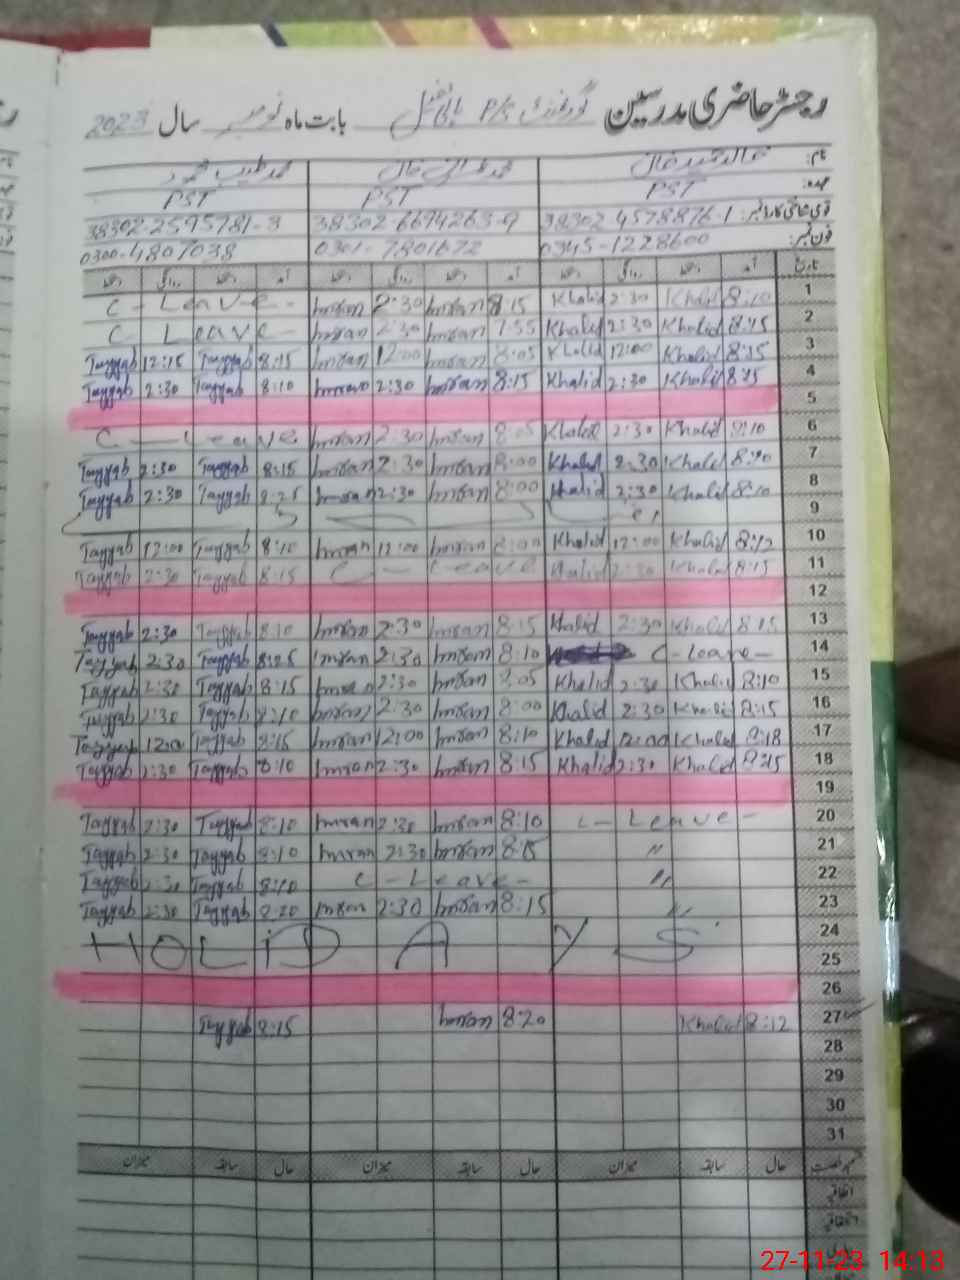 رجسٹر حاضری مدرسین گورنمنٹ P/S بابت ماہ نومبر سال 2023
نام: خالد حمید خان محمد عمران خان محمد طیب محمود
عہدہ: PST PST PST
قومی شناختی کارڈ نمبر: 38302-4578876-1 38302-6694263-9 38302-2595781-3
فون نمبر: 0345-1228600 0301-7801672 0300-4807038
تاریخ آمد دستخط روانگی دستخط آمد دستخط روانگی دستخط آمد دستخط روانگی دستخط
C - Leave - Imran 2:30 Imran 8:15 Khalid 2:30 Khalid 8:10 1
C Leave - Imran 2:30 Imran 7:55 Khalid 2:30 Khalid 8:15 2
Tayyab 12:15 Tayyab 8:15 Imran 12:00 Imran 8:05 Khalid 12:00 Khalid 8:15 3
Tayyab 2:30 Tayyab 8:10 Imran 2:30 Imran 8:15 Khalid 2:30 Khalid 8:15 4
5
C - Leave Imran 2:30 Imran 8:05 Khalid 2:30 Khalid 8:10 6
Tayyab 2:30 Tayyab 8:15 Imran 2:30 Imran 8:00 Khalid 2:30 Khalid 8:10 7
Tayyab 2:30 Tayyab 8:25 Imran 2:30 Imran 8:00 Khalid 2:30 Khalid 8:10 8
9
Tayyab 12:00 Tayyab 8:10 Imran 12:00 Imran 8:00 Khalid 12:00 Khalid 8:12 10
Tayyab 2:30 Tayyab 8:15 C - Leave Khalid 2:30 Khalid 8:15 11
12
Tayyab 2:30 Tayyab 8:10 Imran 2:30 Imran 8:15 Khalid 2:30 Khalid 8:15 13
Tayyab 2:30 Tayyab 8:25 Imran 2:30 Imran 8:10 C - Leave - 14
Tayyab 2:30 Tayyab 8:15 Imran 2:30 Imran 8:05 Khalid 2:30 Khalid 8:10 15
Tayyab 2:30 Tayyab 8:10 Imran 2:30 Imran 8:00 Khalid 2:30 Khalid 8:15 16
Tayyab 12:00 Tayyab 8:15 Imran 12:00 Imran 8:10 Khalid 12:00 Khalid 8:18 17
Tayyab 2:30 Tayyab 8:10 Imran 2:30 Imran 8:15 Khalid 2:30 Khalid 8:15 18
19
Tayyab 2:30 Tayyab 8:10 Imran 2:30 Imran 8:10 C - Leave - 20
Tayyab 2:30 Tayyab 8:10 Imran 2:30 Imran 8:15 " 21
Tayyab 2:30 Tayyab 8:10 C - Leave - " 22
Tayyab 2:30 Tayyab 8:20 Imran 2:30 Imran 8:15 " 23
HOLIDAYS 24
25
26
Tayyab 8:15 Imran 8:20 Khalid 8:12 27
28
29
30
31
حال سابقہ میزان حال سابقہ میزان حال سابقہ میزان
اتفاقیہ
27-11-23 14:13